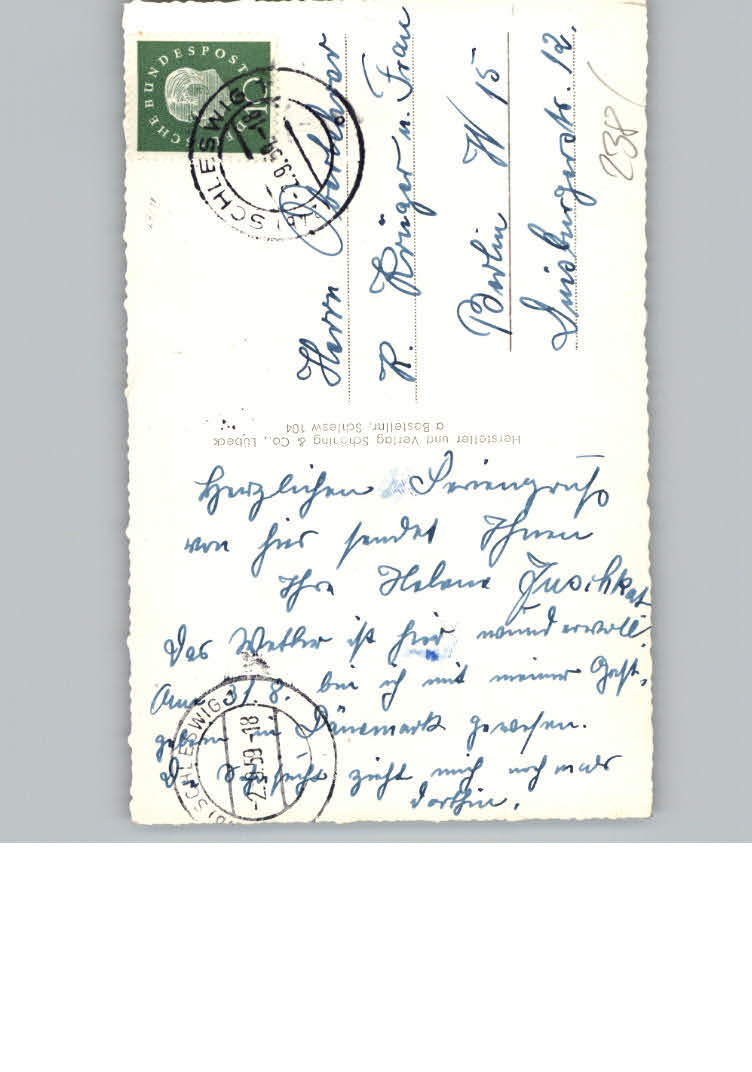 Herzlichen Feriengruß
von hier sendet Ihnen
Ihre Helene Juschkat
Das Wetter ist hier wundervoll
Am 31.8. bin ich mit meiner Gast-
gebern in Dänemark gewesen.
Die Sehnsucht zieht mich nochmals
dorthin.
Hersteller und Verlag Schöning & Co., Lübeck
a Bestellnr. Schlesw 104
Herrn Pfarrer
R. Krüger u. Frau
Berlin W 15
Duisburgerstr. 12.
238/
DEUTSCHE BUNDESPOST
SCHLESWIG
-2.9.59-18
SCHLESWIG
-2.9.59-18